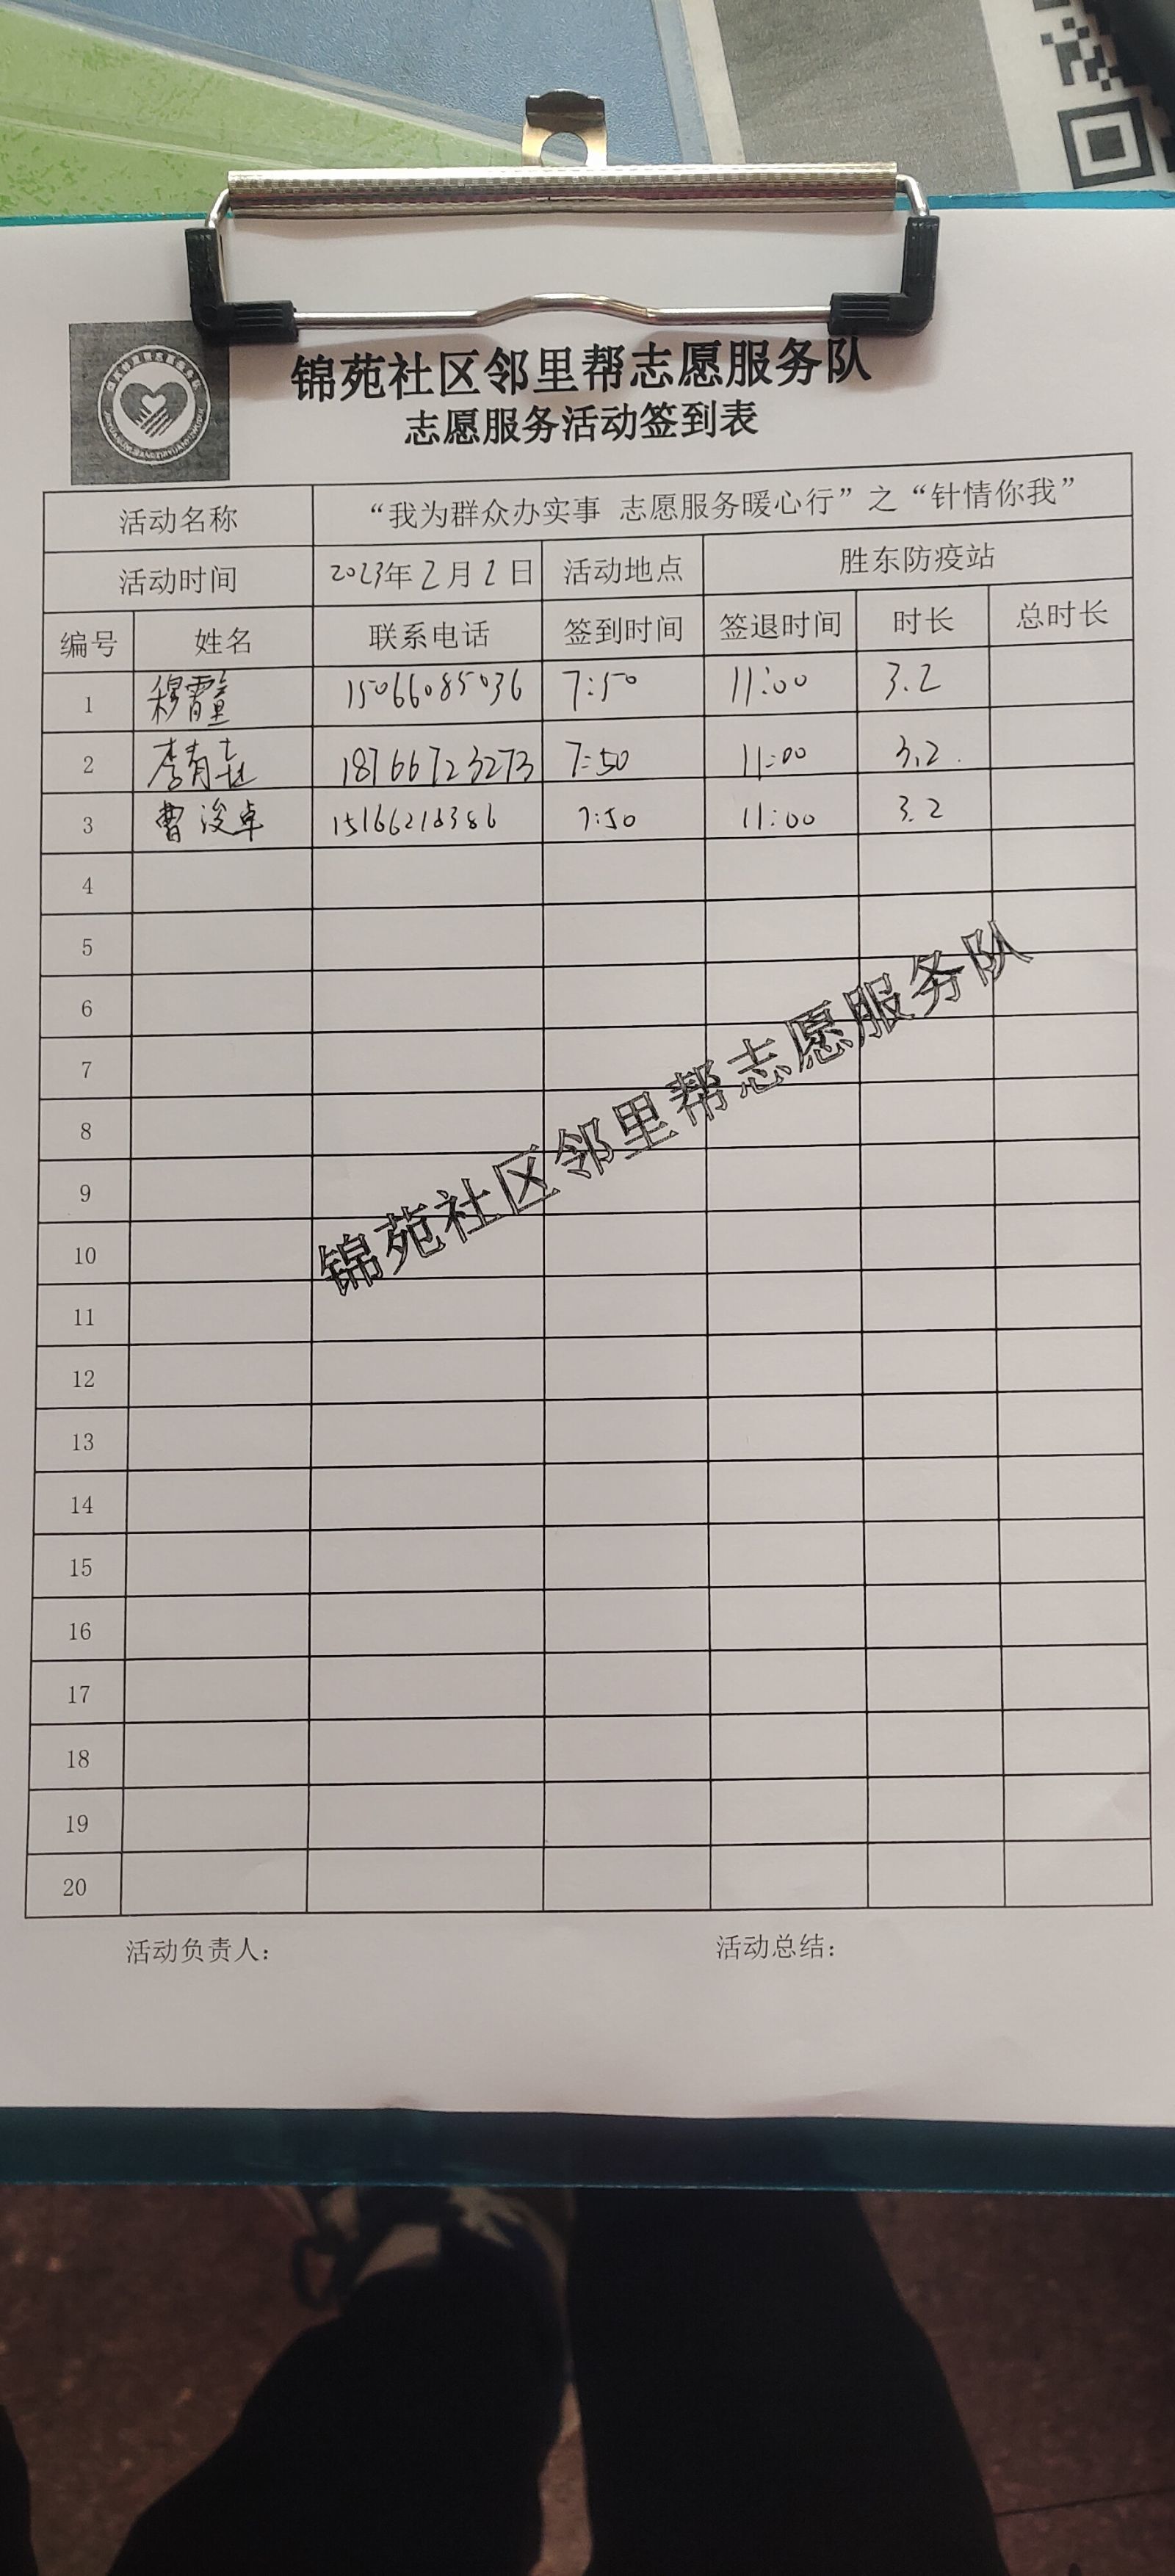 锦苑社区邻里帮志愿服务队
志愿服务活动签到表
活动名称 “我为群众办实事 志愿服务暖心行”之“针情你我”
活动时间 2023年2月2日 活动地点 胜东防疫站
编号 姓名 联系电话 签到时间 签退时间 时长 总时长
1 穆霄童 15066085036 7:50 11:00 3.2
2 李青 18766723273 7:50 11:00 3.2
3 曹浚卓 15166218386 7:50 11:00 3.2
4
5
6
7
8
9
10
11
12
13
14
15
16
17
18
19
20
锦苑社区邻里帮志愿服务队
活动负责人： 活动总结：